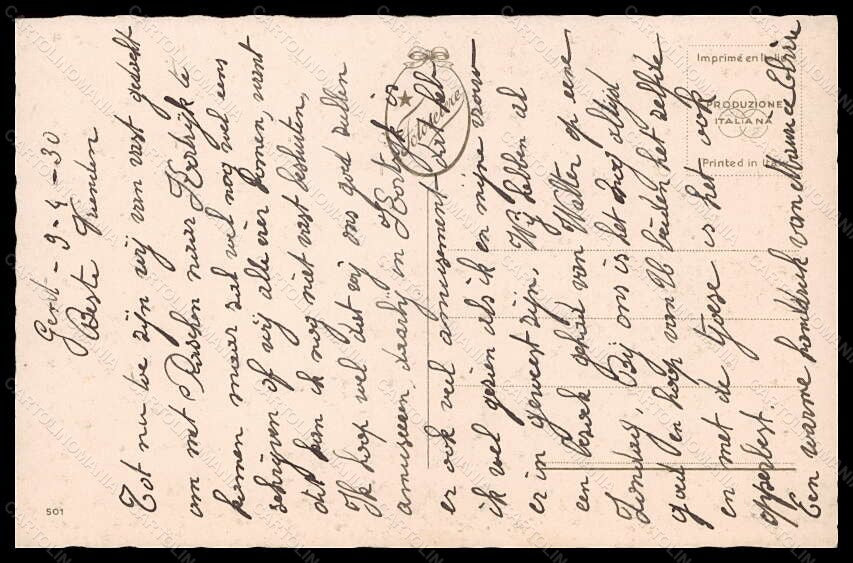 Gent - 9-4-30
Beste Vrienden
Tot nu toe zijn wij van vast gedacht
om met Paschen naar Kortrijk te
komen maar zal wel nog wel eens
schrijven of wij alle vier komen, want
dat kan ik nog niet vast besluiten,
Ik hoop wel dat wij ons goed zullen
amuseeren, daarbij in Kortrijk is
er ook veel amusement dat heb
ik wel gezien als ik en mijne vrouw
er in geweest zijn. Wij hebben al
een bezoek gehad van Walter op eene
Zondag. Bij ons is het nog altijd
goed en hoop van U beiden het zelfde
en met de tjoese is het ook
opperbest.
Een warme handdruk van Maurice Elvire
Fotocelere
Imprimé en Italie
PRODUZIONE
ITALIANA
Printed in Italy
501
CARTOLINOMANIA